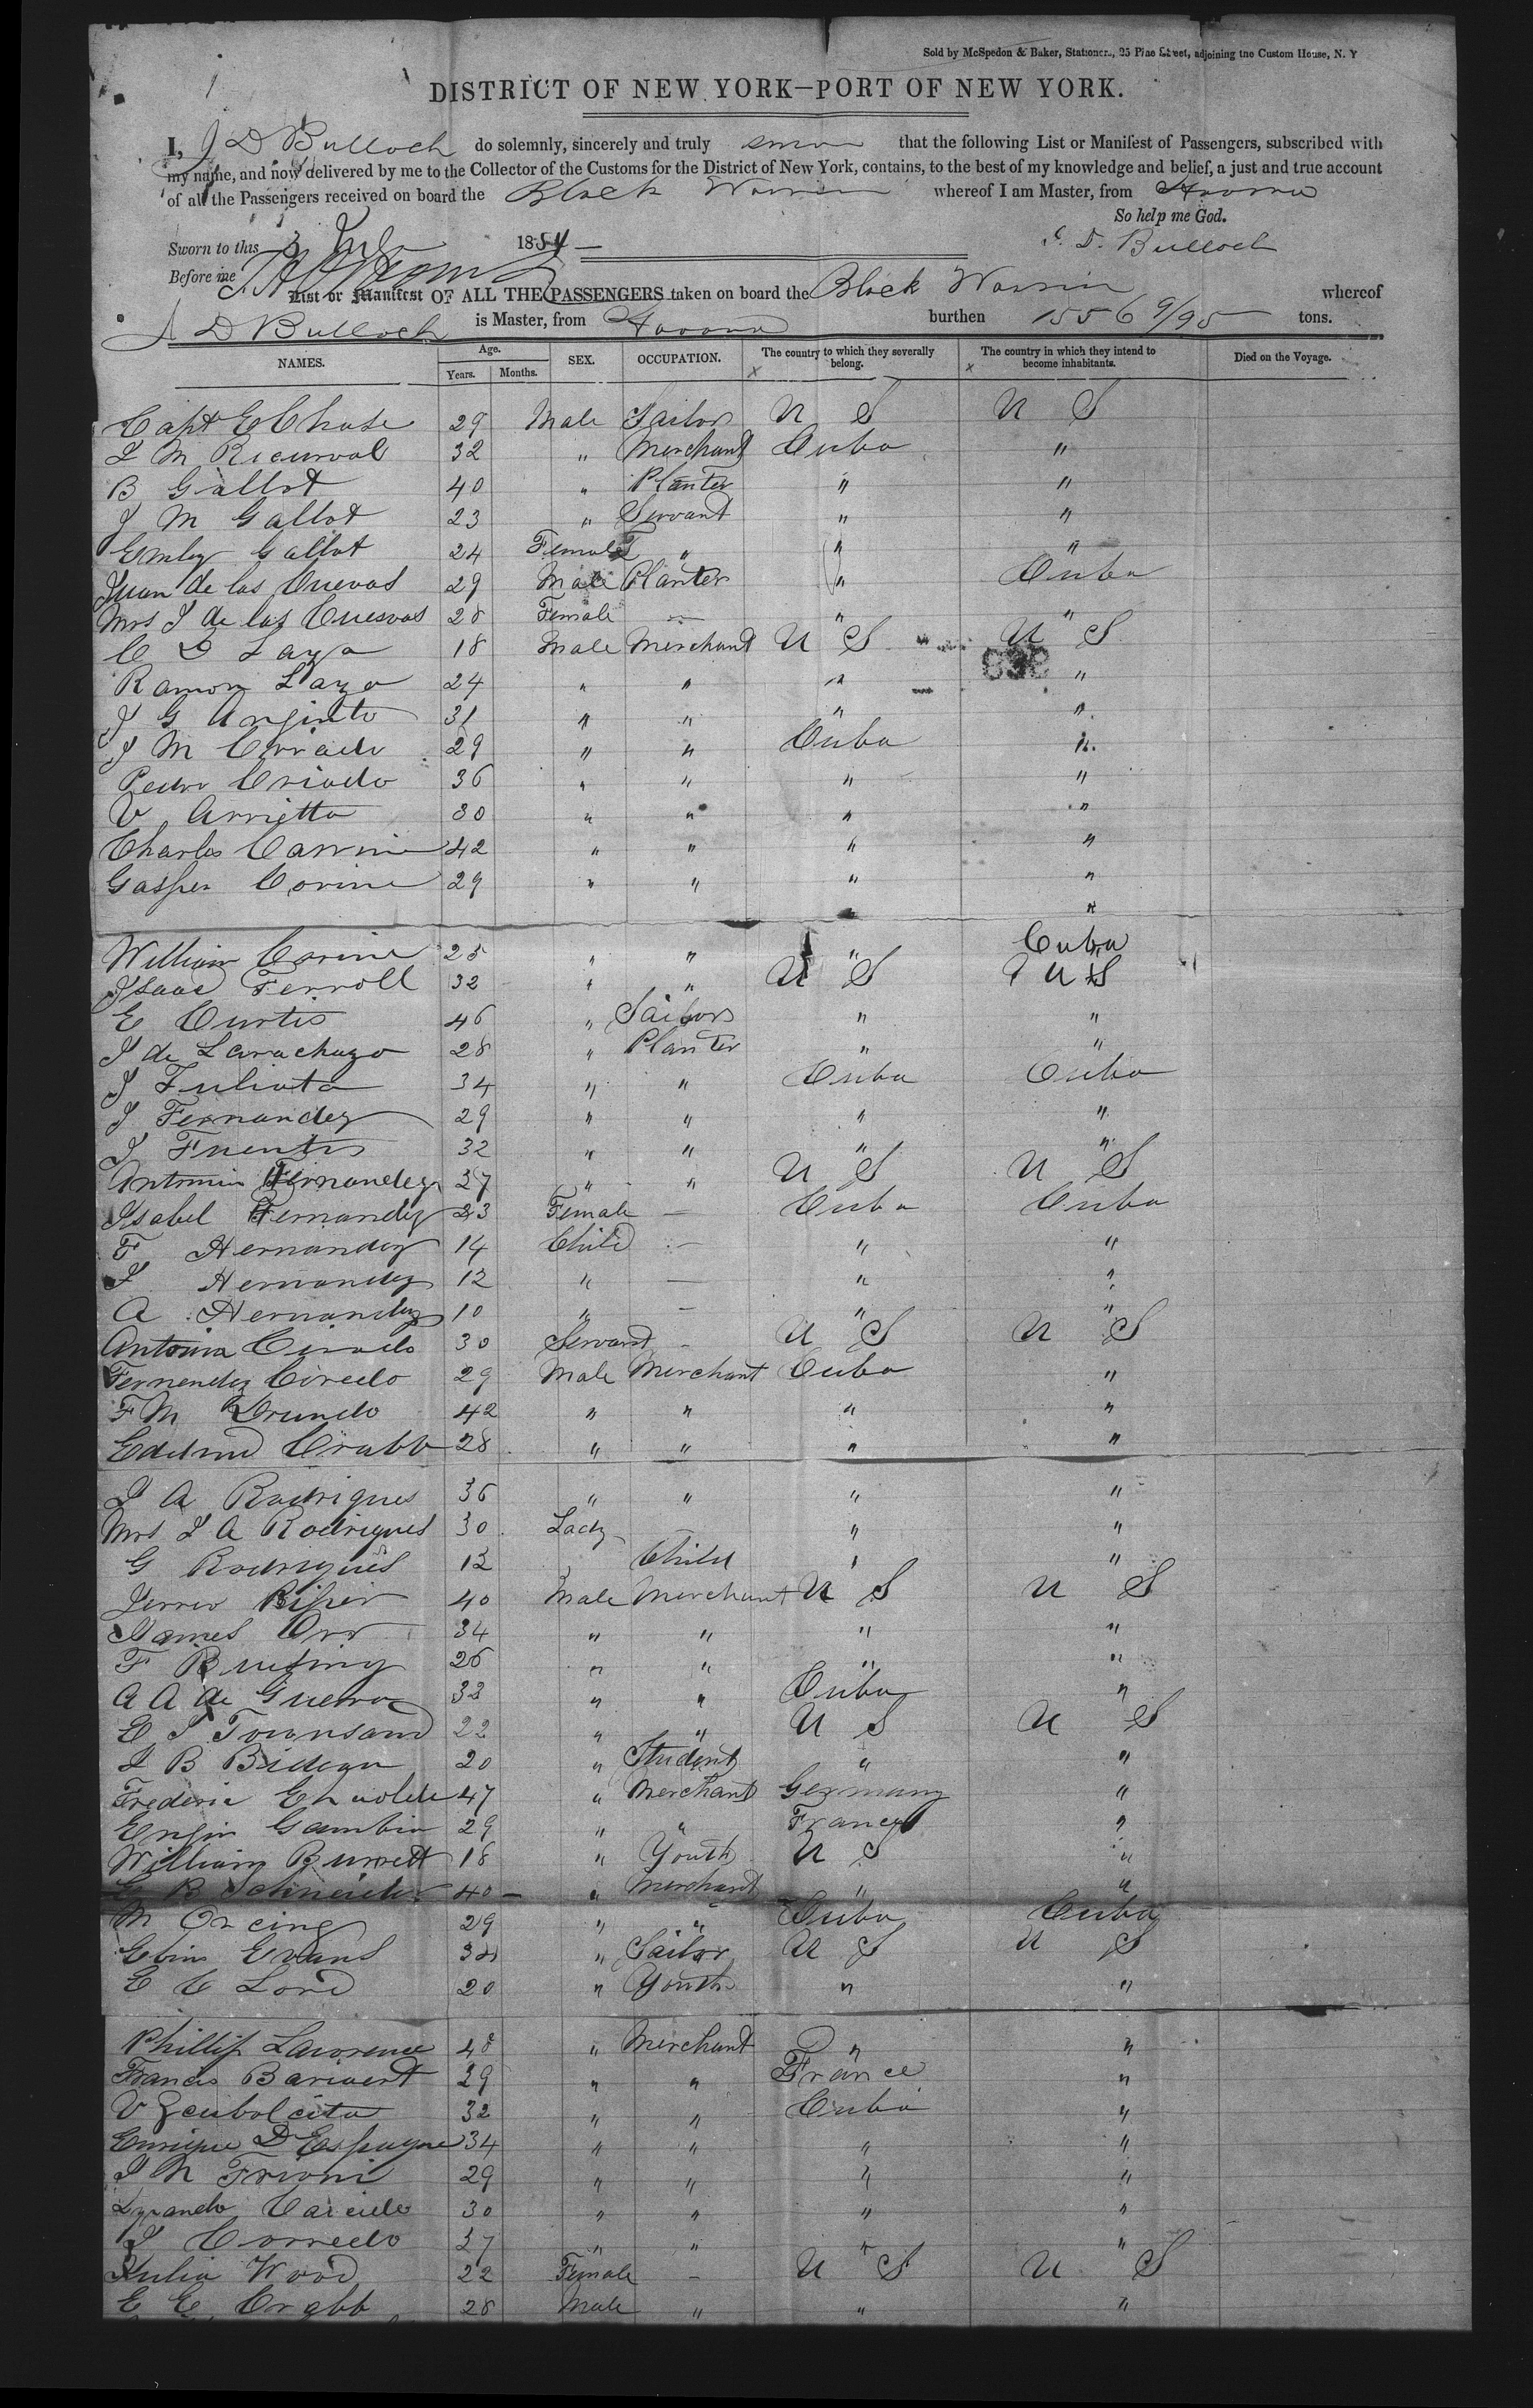 Sold by McSpedon & Baker, Stationers, 25 Pine Street, adjoining the Custom House, N. Y
DISTRICT OF NEW YORK—PORT OF NEW YORK.
I, J D Bulloch do solemnly, sincerely and truly swear that the following List or Manifest of Passengers, subscribed with
my name, and now delivered by me to the Collector of the Customs for the District of New York, contains, to the best of my knowledge and belief, a just and true account
of all the Passengers received on board the Black Warrior whereof I am Master, from Havana
So help me God.
Sworn to this 3 July 1854
J. D. Bulloch
Before me
List or Manifest OF ALL THE PASSENGERS taken on board the Black Warrior whereof
J D Bulloch is Master, from Havana burthen 1556 9/95 tons.
NAMES. Age. Years. Months. SEX. OCCUPATION. The country to which they severally belong. The country in which they intend to become inhabitants. Died on the Voyage.
Capt E Chase 29 Male Sailor U S U S
J M 32 " Merchant Cuba "
B Gallot 40 " Planter " "
J M Gallot 23 " Servant " "
Emly Gallot 24 Female " " "
Juan de las Cuevas 29 Male Planter " Cuba
Mrs J de las Cuesvas 28 Female — " "
C D Laza 18 Male Merchant U S U S
898
Ramon Lazo 24 " " " "
J G 31 " " " "
J M 29 " " Cuba "
Pedro Criado 36 " " " "
V Arrietta 30 " " " "
Charles 42 " " " "
Gasper Corine 29 " " " "
"
William Corine 25 " " " Cuba
Isaac Ferroll 32 " " U S U S
E Curtis 46 " Sailor " "
J de 28 " Planter " "
J 34 " " Cuba Cuba
J Fernandez 29 " " " "
J Fuentes 32 " " " "
Antonio Hernandez 27 " " U S U S
Isabel Hernandez 23 Female — Cuba Cuba
F Hernandez 14 Child — " "
J Hernandez 12 " — " "
A Hernandez 10 " — " "
Antonia 30 Servant - U S U S
Fernendez 29 Male Merchant Cuba "
F M 42 " " " "
Edelmd Crabb 28 " " " "
J A Rodrigues 36 " " " "
Mrs J A Rodrigues 30 Lady — " "
G Rodrigues 12 Child " "
40 Male Merchant U S U S
James Orr 34 " " " "
F 26 " " " "
A A de Guerra 33 " " Cuba "
E J Townsand 22 " " U S U S
J B 20 " Student " "
Frederic 47 " Merchant Germany "
Gambin 29 " " France "
William Burrett 18 " Youth U S "
G B Schneider 40 — " Merchant " "
M 29 " " Cuba Cuba
Evans 34 " Sailor U S U S
E C Lord 20 " Youth " "
Phillip Lawrence 48 " Merchant " "
Francis 29 " " France "
V 32 " " Cuba "
Enrique D Espagne 34 " " " "
J M 29 " " " "
30 " " " "
J 37 " " " "
Julia Wood 22 Female — U S U S
E E Crabb 28 Male " " "